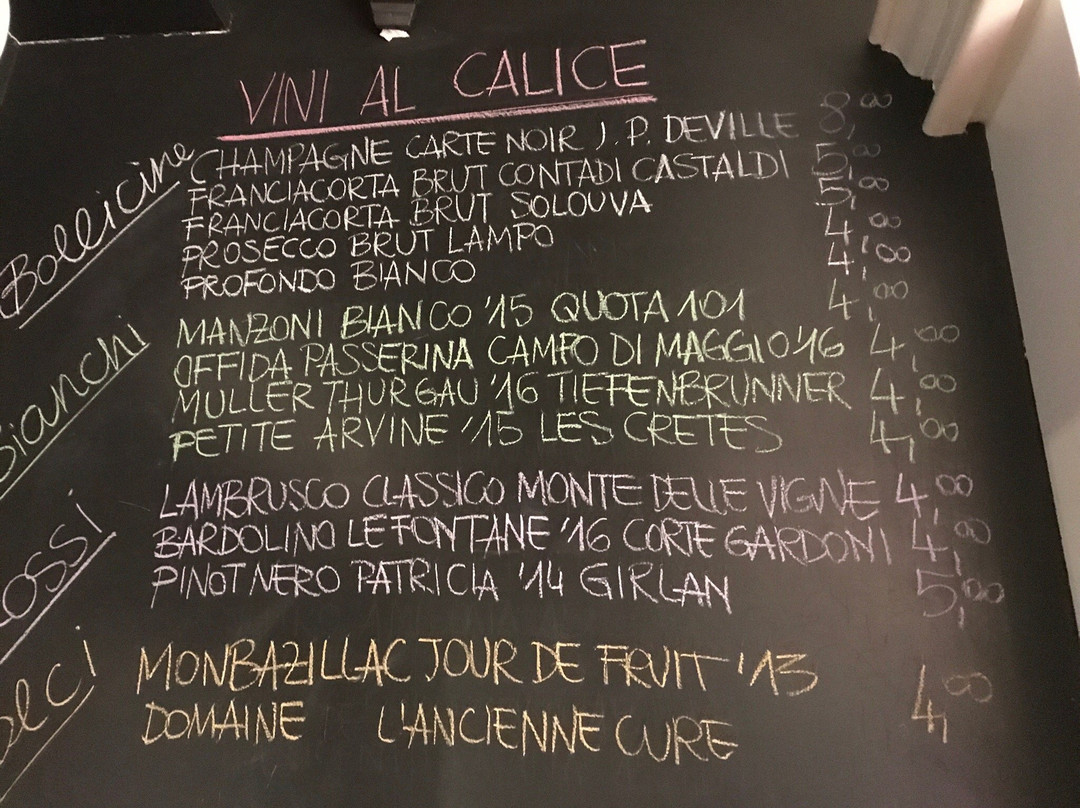 VINI AL CALICE
Bollicine
CHAMPAGNE CARTE NOIR J. P. DEVILLE 8,00
FRANCIACORTA BRUT CONTADI CASTALDI 5,00
FRANCIACORTA BRUT SOLOUVA 5,00
PROSECCO BRUT LAMPO 4,00
PROFONDO BIANCO 4,00
Bianchi
MANZONI BIANCO '15 QUOTA 101 4,00
OFFIDA PASSERINA CAMPO DI MAGGIO '16 4,00
MULLER THURGAU '16 TIEFENBRUNNER 4,00
PETITE ARVINE '15 LES CRETES 4,00
ossi
LAMBRUSCO CLASSICO MONTE DELLE VIGNE 4,00
BARDOLINO LE FONTANE '16 CORTE GARDONI 4,00
PINOT NERO PATRICIA '14 GIRLAN 5,00
olci
MONBAZILLAC JOUR DE FRUIT '13
DOMAINE L'ANCIENNE CURE 4,00